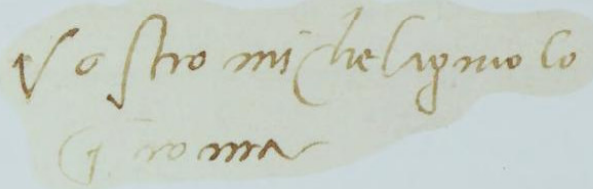 Vostro michelagniolo
in roma